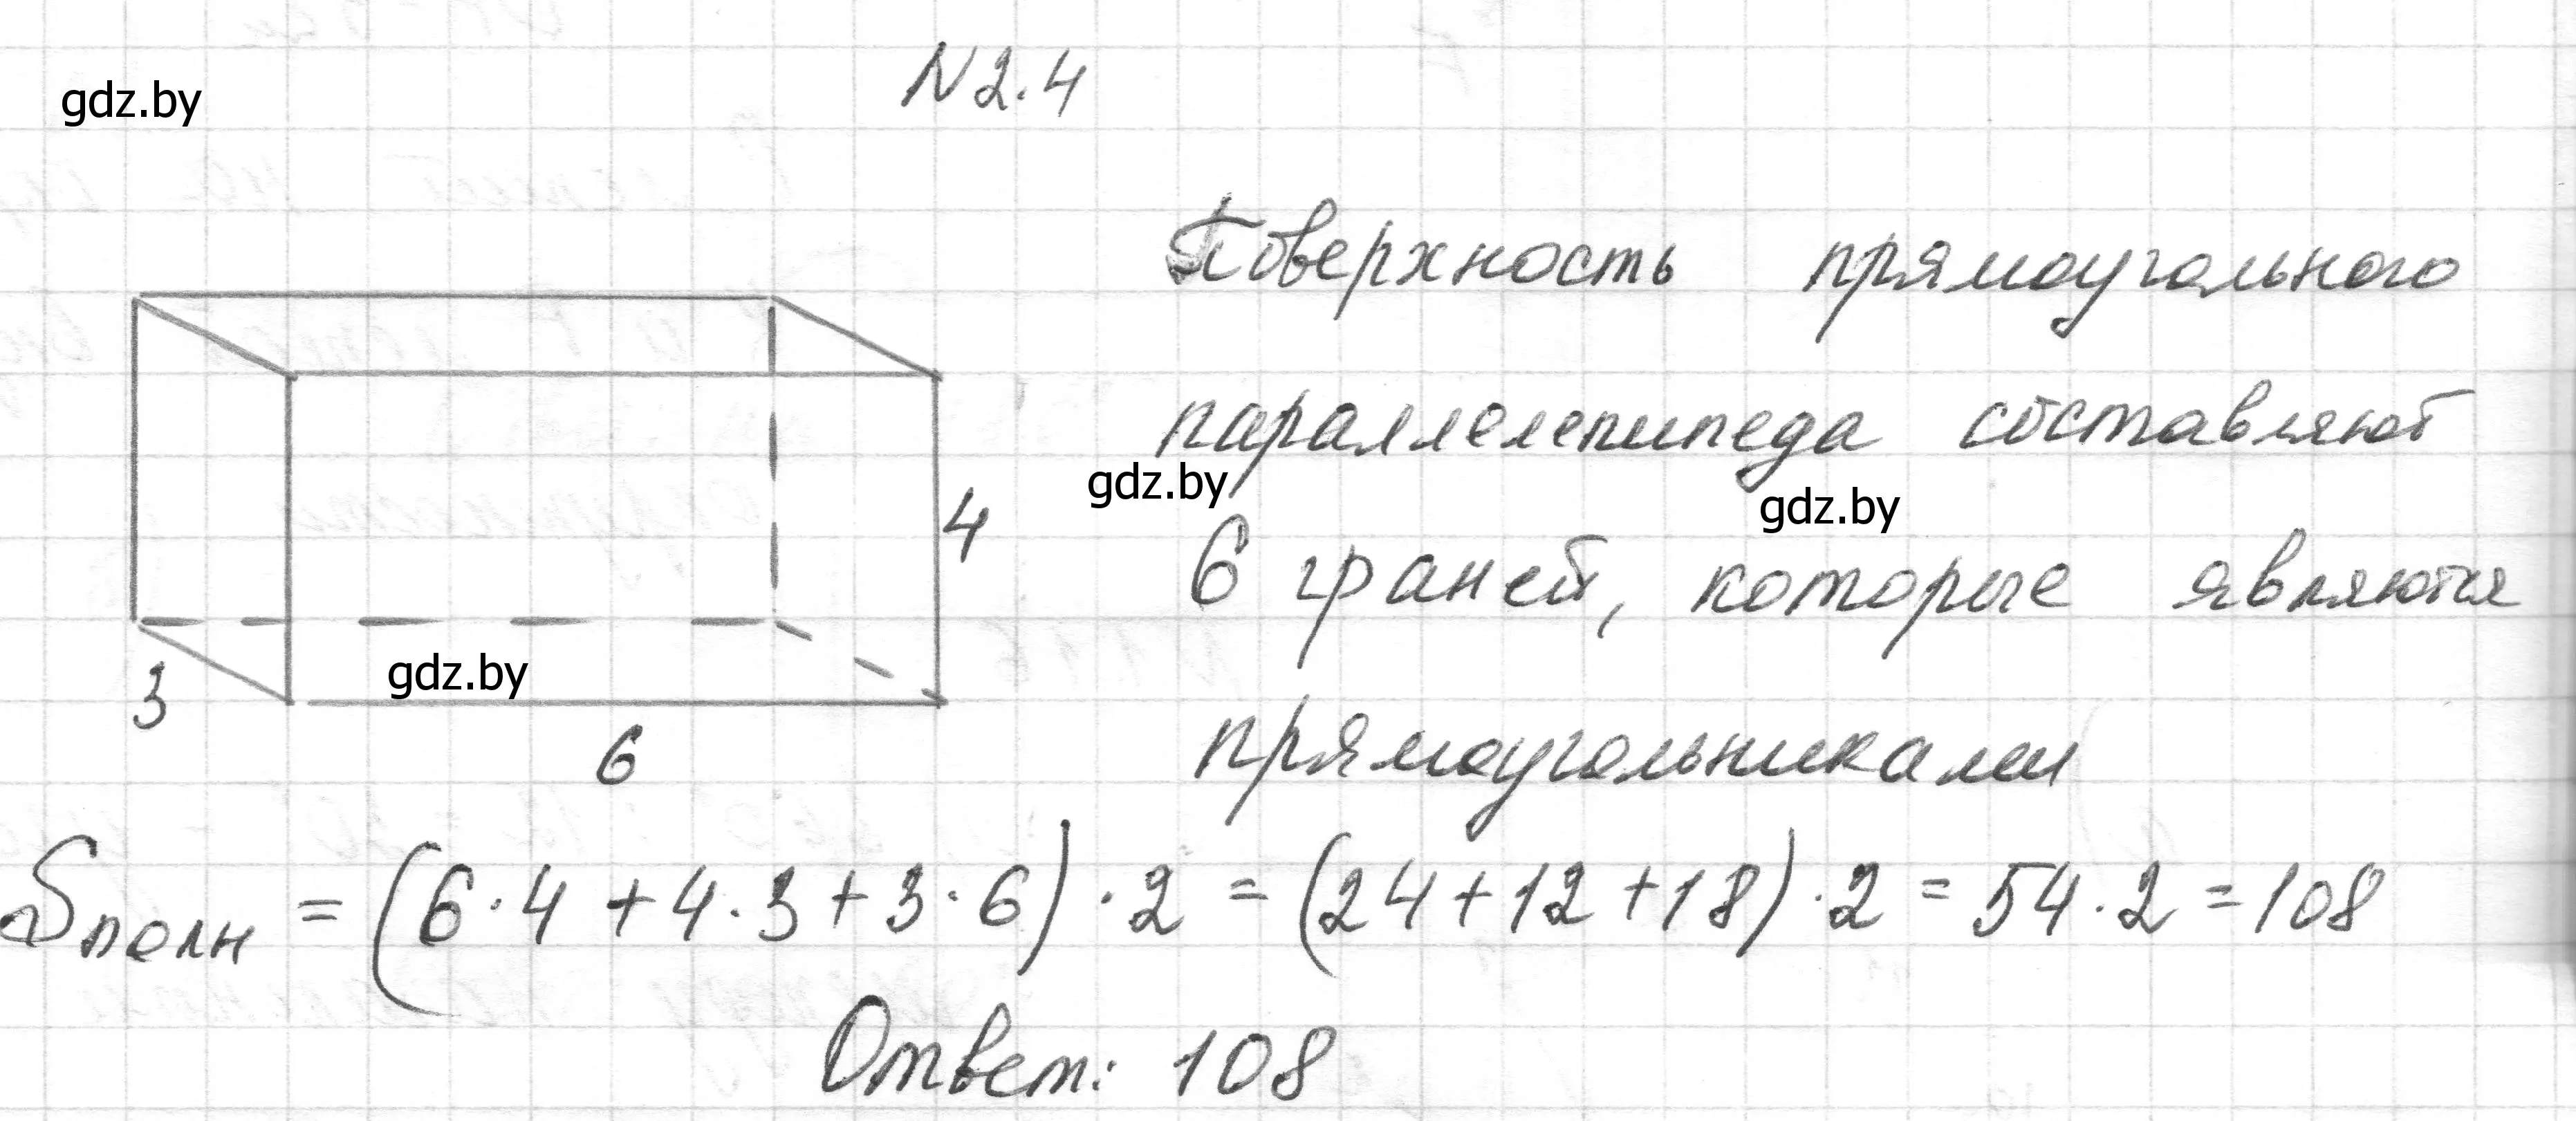 N 2.4
gdz.by
Поверхность прямоугольного
параллелепипеда составляют
gdz.by
gdz.by
4
6 граней, которые являются
gdz.by
3
6
прямоугольниками
Sполн = (6·4 + 4·3 + 3·6) · 2 = (24 + 12 + 18) · 2 = 54 · 2 = 108
Ответ: 108